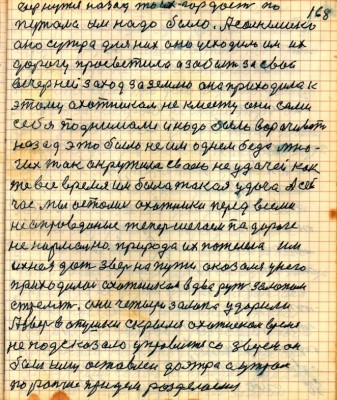 168
вернутся назад то их гордост по
путала им надо было. А солнышко
оно сутра для них оно уходило им их
дорогу просветило а забыт за свой
вечерней заход за землю она приходила к
этому охотникам не к месту они сами
себя поднимали и надо было ворачивать
назад это было не им одним беда мно-
гих так окружила своей не удачей как
то все время им была такая удача А сей
час мы устали охотники перед всеми
не оправданые теперь шагаем па дороге
не нормально. природа их потемнела им
ихная дют звер на пути оказался у него
приходилос охотникам в два рут залопам
стрелят. они четыри залопа ударили
А звер в опушки скрылся охотникам время
не подсказало управится со зверем он
был ими оставлен до утра а утром
по ранше придем разделаем